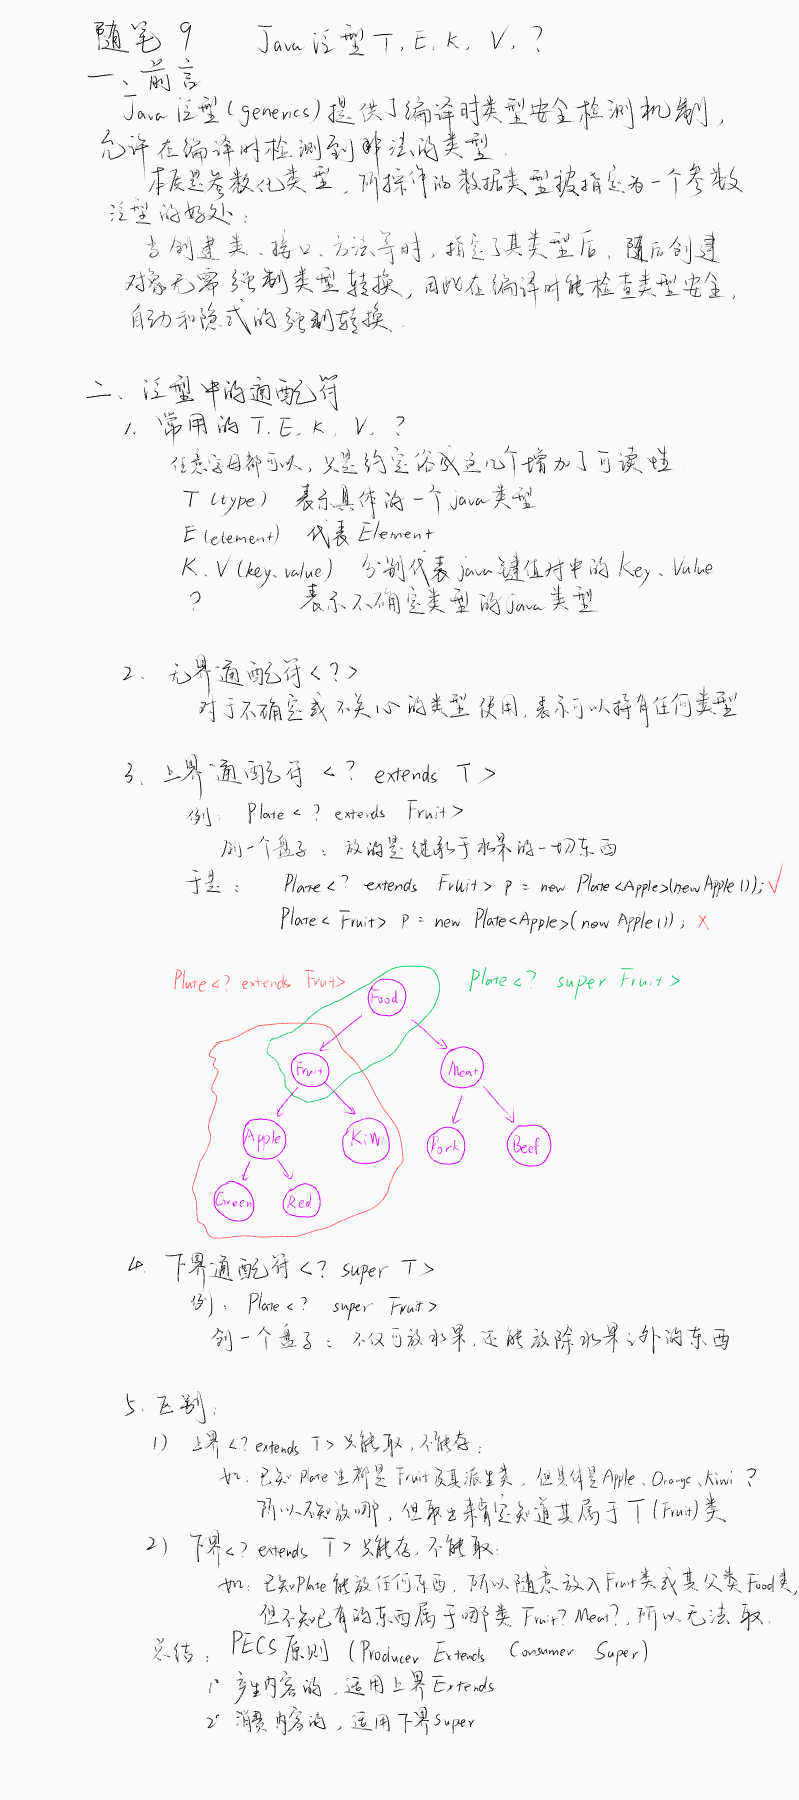 随笔 9 Java 泛型 T, E, K, V, ?
一、前言
Java 泛型(generics)提供了编译时类型安全检测机制,
允许在编译时检测到非法的类型.
本质是参数化类型, 所操作的数据类型被指定为一个参数
泛型的好处:
当创建类、接口、方法等时, 指定了其类型后, 随后创建
对象无需强制类型转换, 因此在编译时能检查类型安全,
自动和隐式的强制转换.
二、泛型中的通配符
1. 常用的 T, E, K, V, ?
任意字母都可以, 只是约定俗成这几个增加了可读性
T (type) 表示具体的一个java类型
E (element) 代表 Element
K、V (key、value) 分别代表 java键值对中的 Key、Value
? 表示不确定类型的java类型
2. 无界通配符<?>
对于不确定或不关心的类型使用, 表示可以持有任何类型
3、上界通配符 <? extends T>
例: Plate<? extends Fruit>
创一个盘子: 放的是继承于水果的一切东西
于是: Plate<? extends Fruit> p = new Plate<Apple>(new Apple()); √
Plate<Fruit> p = new Plate<Apple>(new Apple()); ×
Plate<? extends Fruit>
Plate<? super Fruit>
Food
Fruit
Meat
Apple
KiWi
Pork
Beef
Green
Red
4. 下界通配符<? super T>
例: Plate<? super Fruit>
创一个盘子: 不仅可放水果, 还能放除水果之外的东西
5. 区别:
1) 上界<? extends T>只能取, 不能存:
如: 已知 Plate里都是 Fruit及其派生类, 但具体是Apple、Orange、Kiwi ?
所以不知放哪, 但取出来肯定知道其属于 T (Fruit)类
2) 下界<? extends T>只能存, 不能取:
如: 已知Plate 能放任何东西, 所以随意放入Fruit类或其父类Food类,
但不知已有的东西属于哪类 Fruit? Meat?, 所以无法取.
总结: PECS原则 (Producer Extends Consumer Super)
1° 产生内容的, 适用上界Extends
2° 消费内容的, 适用下界super